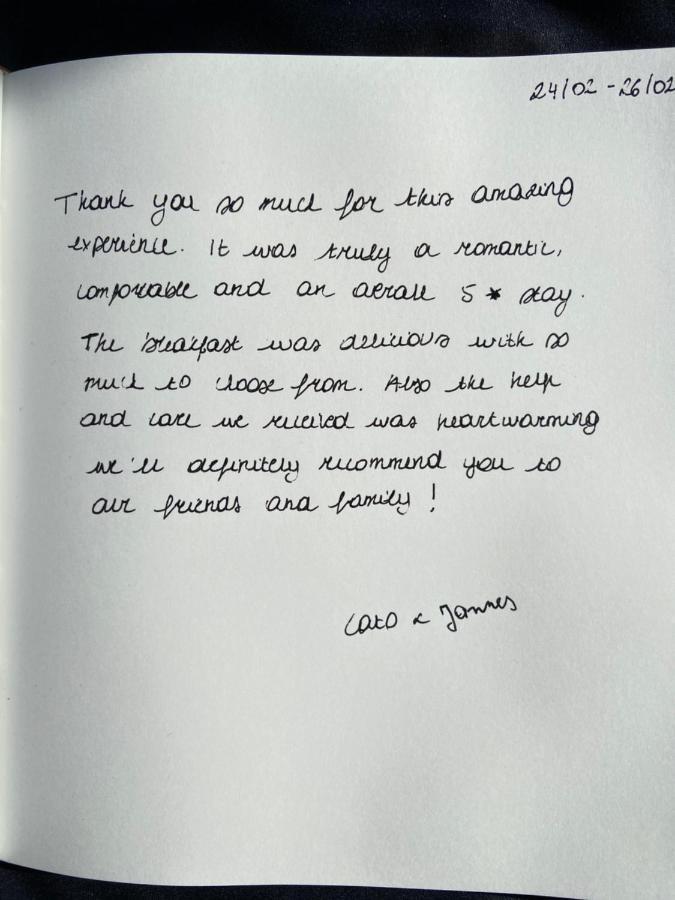 24/02 - 26/02
Thank you so much for this amazing
experience. It was truly a romantic,
comforable and an overall 5 * stay.
The breakfast was delicious with so
much to choose from. Also the help
and care we received was heartwarming
we'll definitely recommend you to
our friends and family !
Cato & Jannes